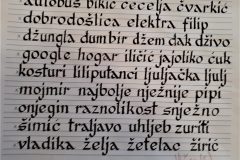 autobus bikić cecelja čvarkić
dobrodošlica elektra filip
džungla dumbir džem dak dživo
google hogar iličić jajoliko ćuk
kosturi liliputanci ljuljačka ljulj
mojmir najbolje nježnije pipi
onjegin raznolikost snježno
šimić traljavo uhljeb zuriti
vladika želja žetelac žirić